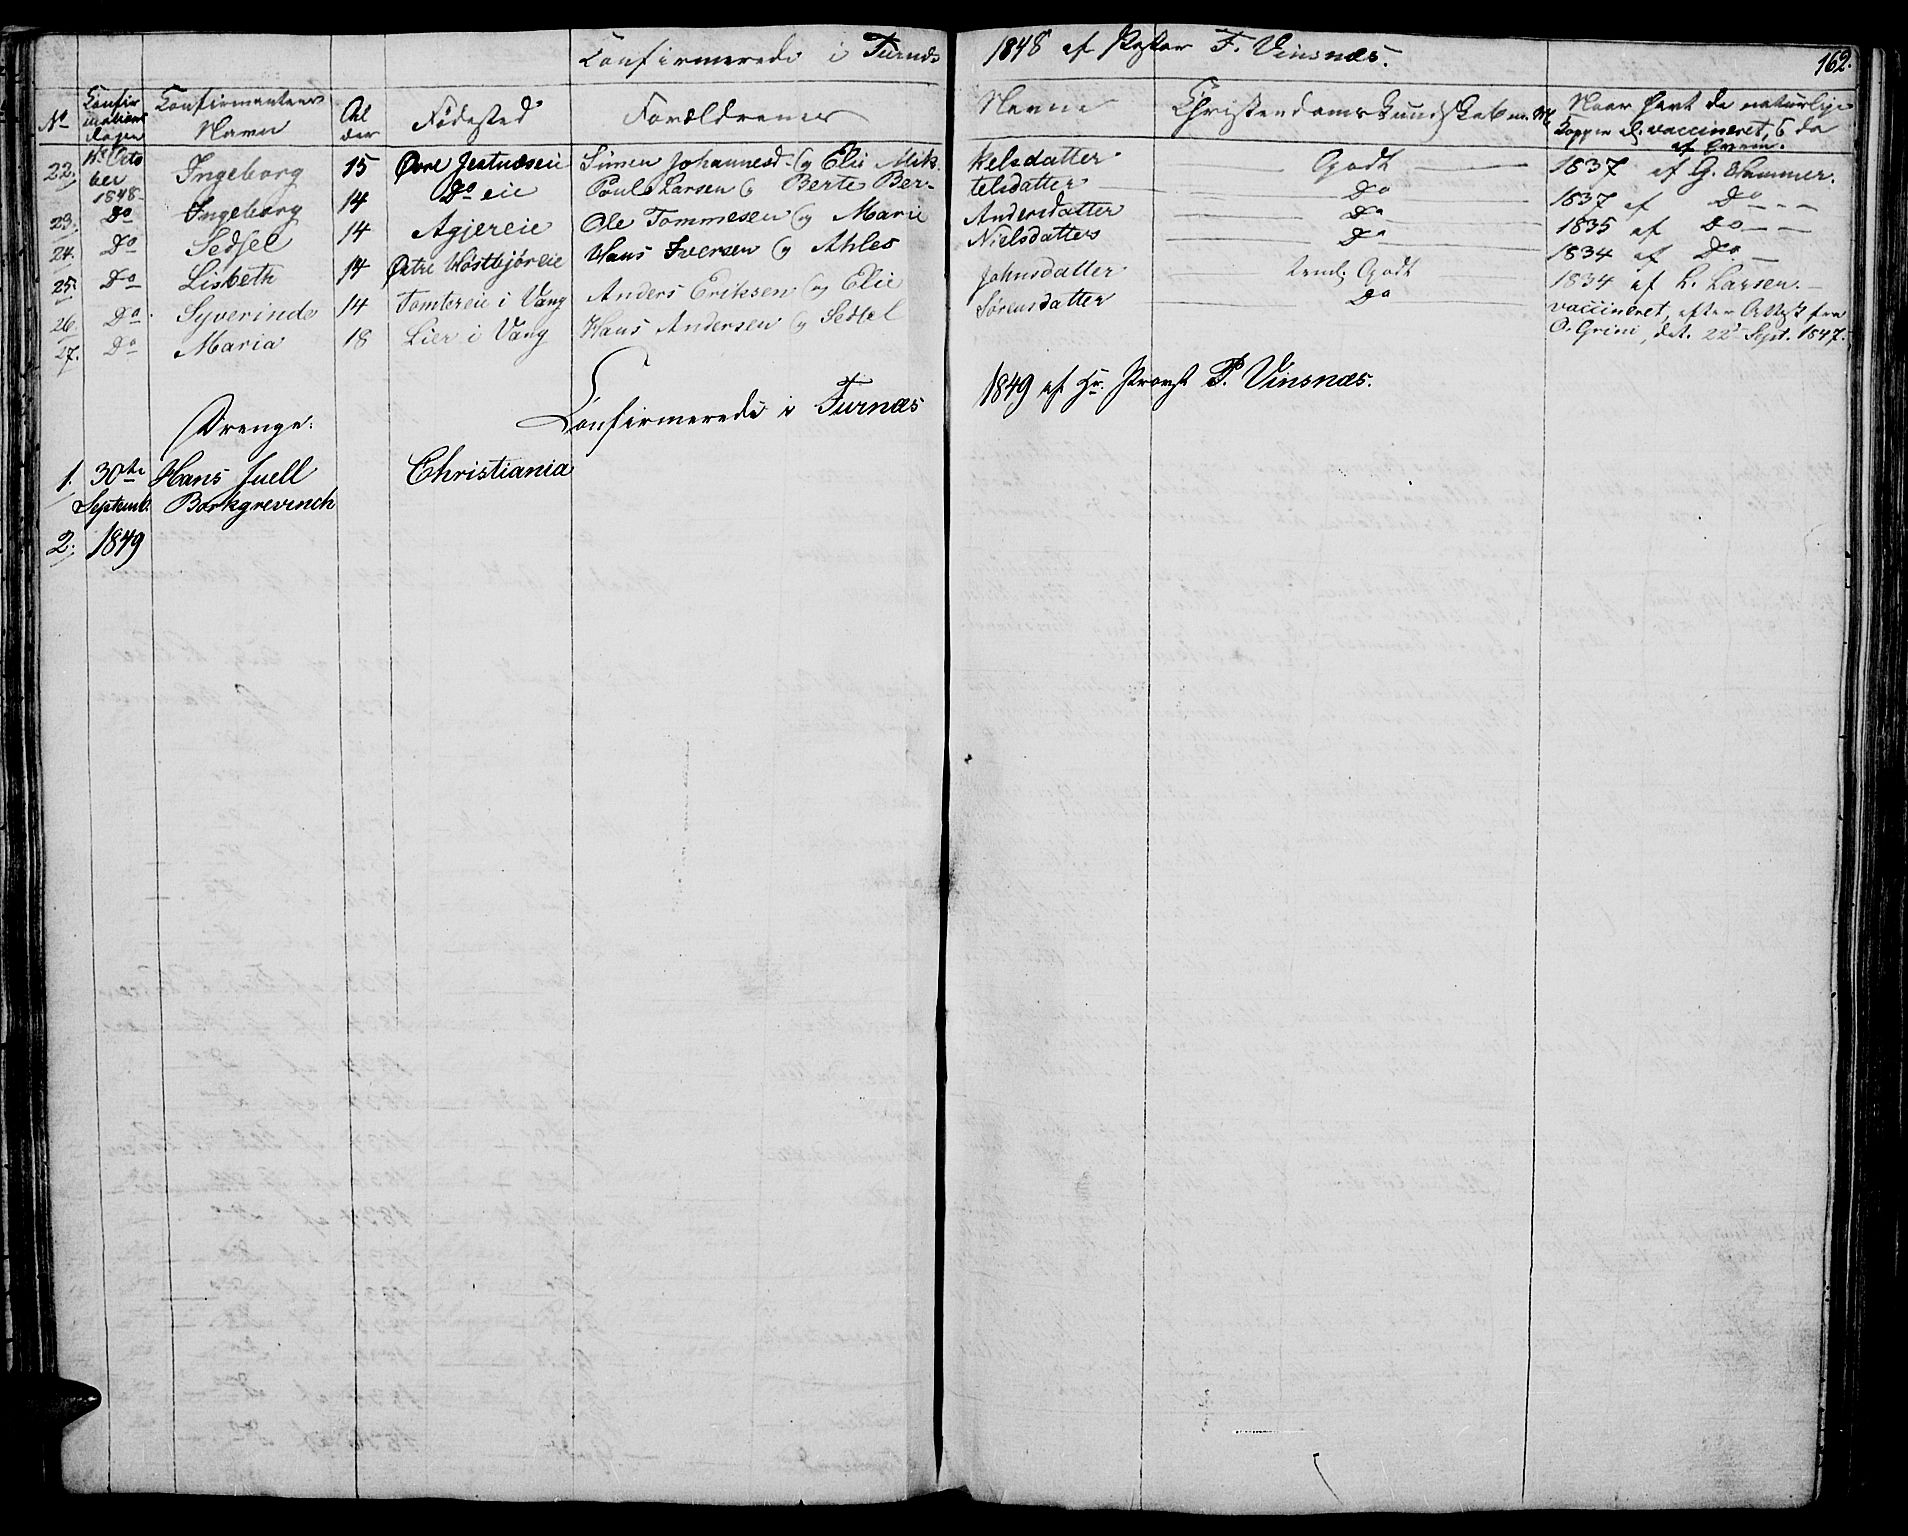 Confirmerede i Furnæs 1848 af Pastor F. Vinsnæs.
162.
No Confirmations Dagen Confirmantens Navn Alder Fødested Forældrenes Navne Christendomskundskab m. M. Naar havt de naturlige Kopper el. vaccineret, & da af hvem.
22. 1ste October 1848 Ingeborg 15 Øvre Jestnæseie Simen Johannesd. og Elie Mikkelsdatter Godt 1837 af G. Hammer.
23. Do Ingeborg 14 Do eie Poul Larsen & Berte Bertelsdatter Do 1837 af Do
24. Do Sedsel 14 Agjereie Ole Tommesen og Marie Andersdatter Do 1835 af Do
25. Do Lisbeth 14 Østre Kostbjøreie Hans Iversen og Ahles Nielsdatters Do 1834 af Do
26. Do Syverinde 14 Tomtereie i Vang Anders Eriksen og Elie Johnsdatter temel. Godt 1834 af L. Larsen.
27. Do Maria 18 Lier i Vang Hans Andersen og Sedsel Sørensdatter Do vaccineret, efter Attest fra
O. Grini, dat. 22d Sept. 1847.
Confirmerede i Furnæs 1849 af Hr. Provst P. Vinsnæs.
Drenge:
1. 30te Hans Juell Christiania
Septemb. Borkgrevinck
2. 1849